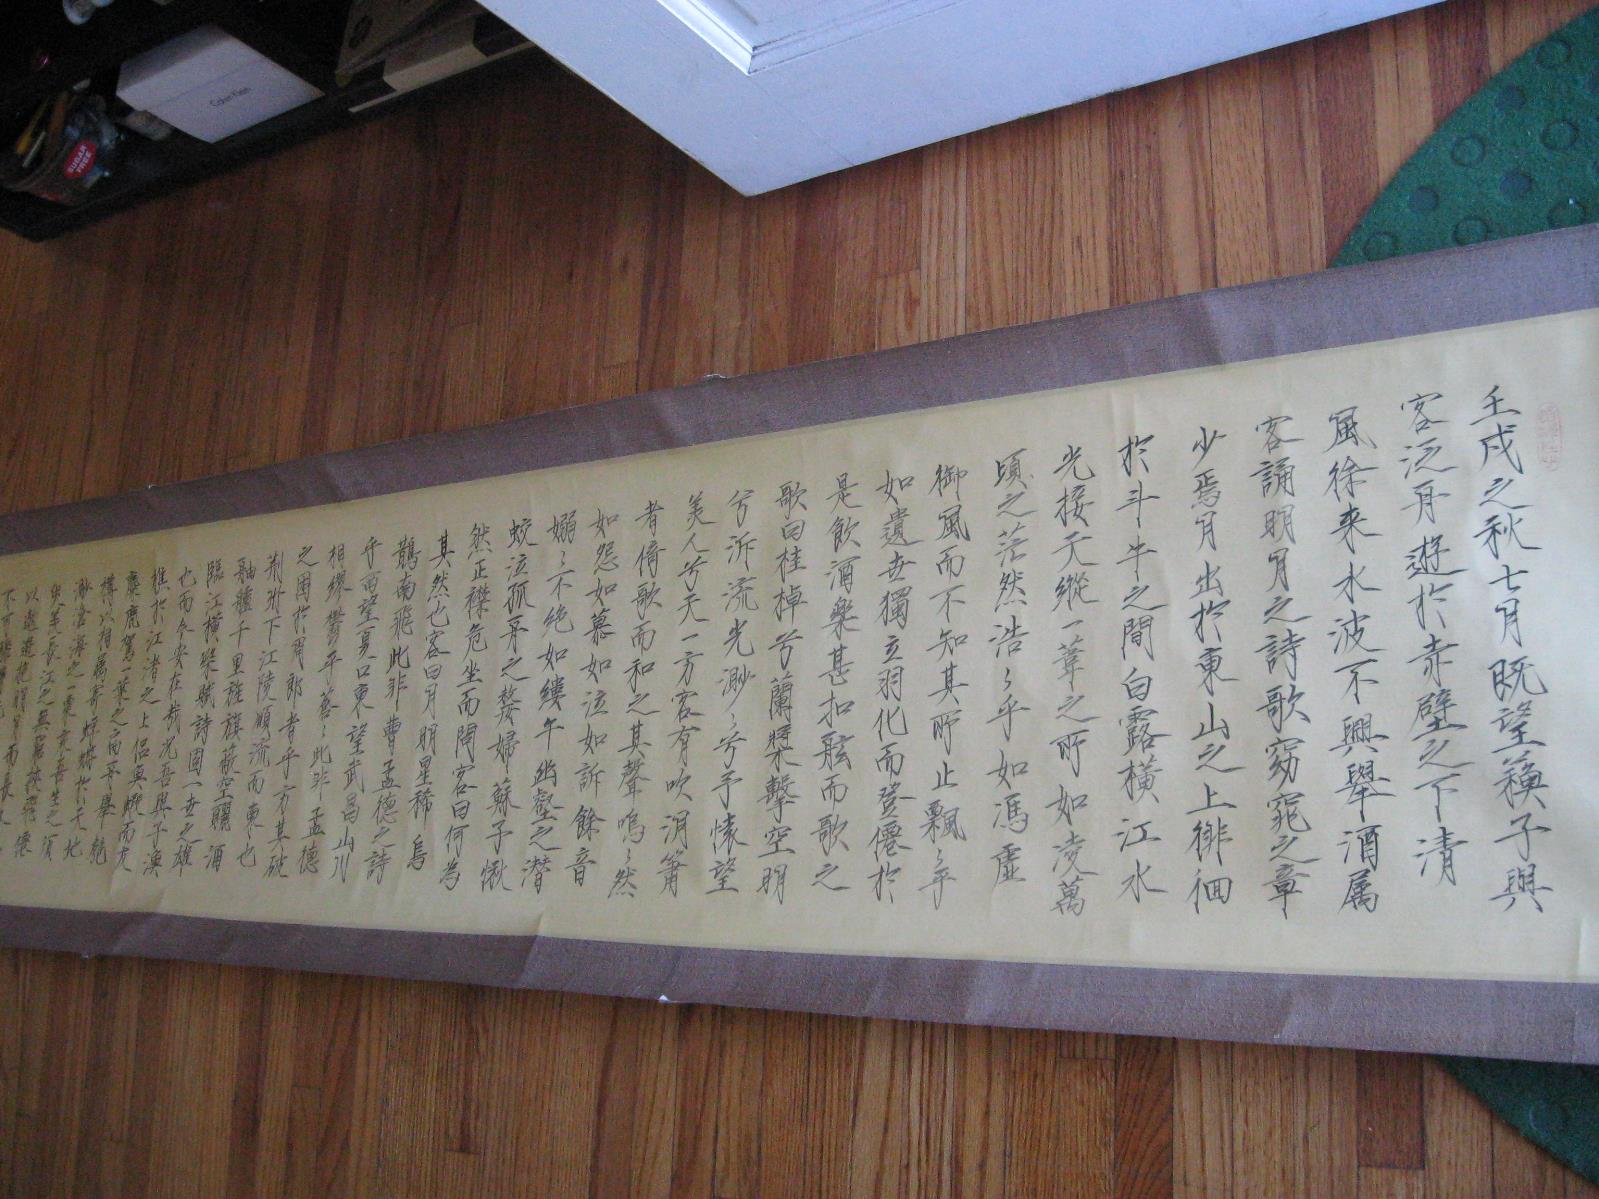 壬戌之秋七月既望蘓子與
客泛舟遊於赤壁之下清
風徐来水波不興舉酒属
客誦明月之詩歌窈窕之章
少焉月出於東山之上徘徊
於斗牛之間白露横江水
光接天縱一葦之所如淩萬
頃之茫然浩〻乎如馮虛
御風而不知其所止飄〻乎
如遺世獨立羽化而登僊於
是飲酒樂甚扣舷而歌之
歌曰桂棹兮蘭槳擊空明
兮泝流光渺〻兮予懷望
美人兮天一方客有吹洞簫
者倚歌而和之其聲嗚〻然
如怨如慕如泣如訴餘音
嫋〻不絶如縷午幽壑之潛
蛟泣孤舟之嫠婦蘇子愀
然正襟危坐而問客曰何為
其然也客曰月明星稀烏
鵲南飛此非曹孟德之詩
乎西望夏口東望武昌山川
相繆鬱乎蒼〻此非孟德
之困於周郎者乎方其破
荆州下江陵順流而東也
舳艫千里旌旗蔽空釃酒
臨江横槊賦詩固一世之雄
也而今安在哉况吾與子漁
樵於江渚之上侣魚蝦而友
麋鹿駕一葉之扁舟舉匏
樽以相属寄蜉蝣於天地
渺滄海之一粟哀吾生之須
臾羨長江之無窮挾飛僊
以遨遊抱明月而長
不可
Calvin Klein
SUGAR FREE